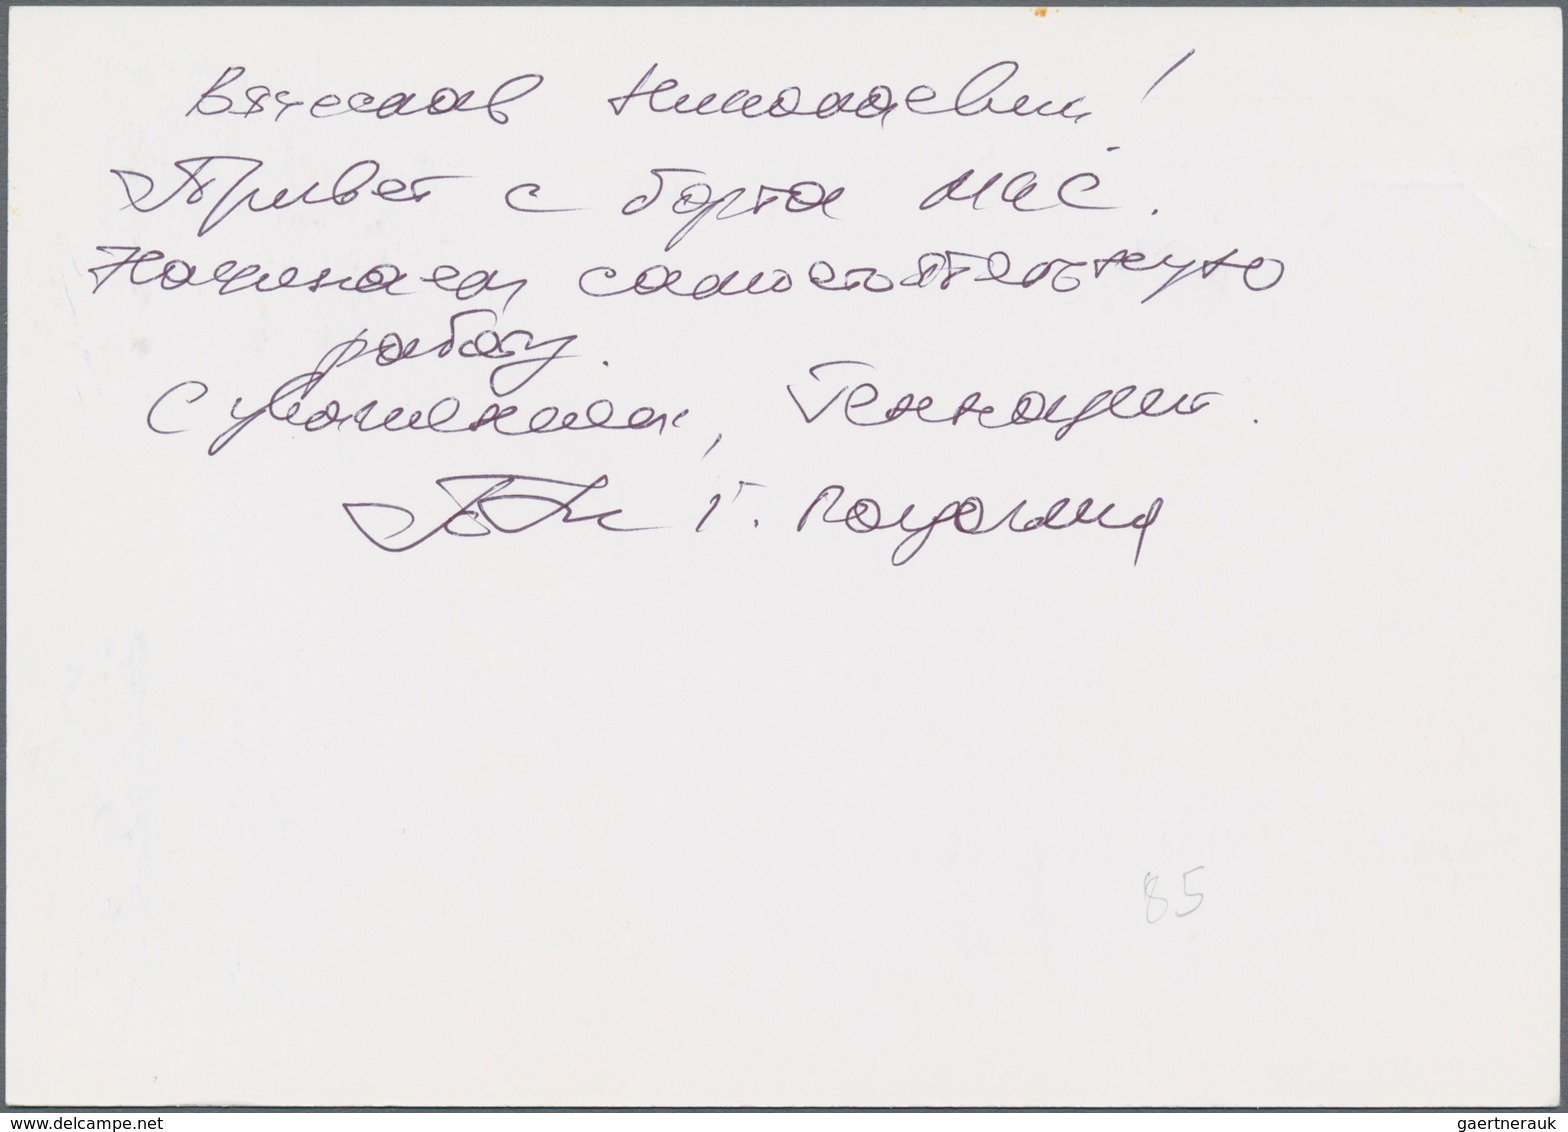 Вячеслав Николаевич!
Привет с борта МКС.
Начинаем самостоятельную
работу.
С уважением, Геннадий.
Г. Падалка
85
www.delcampe.net
gaertnerauk